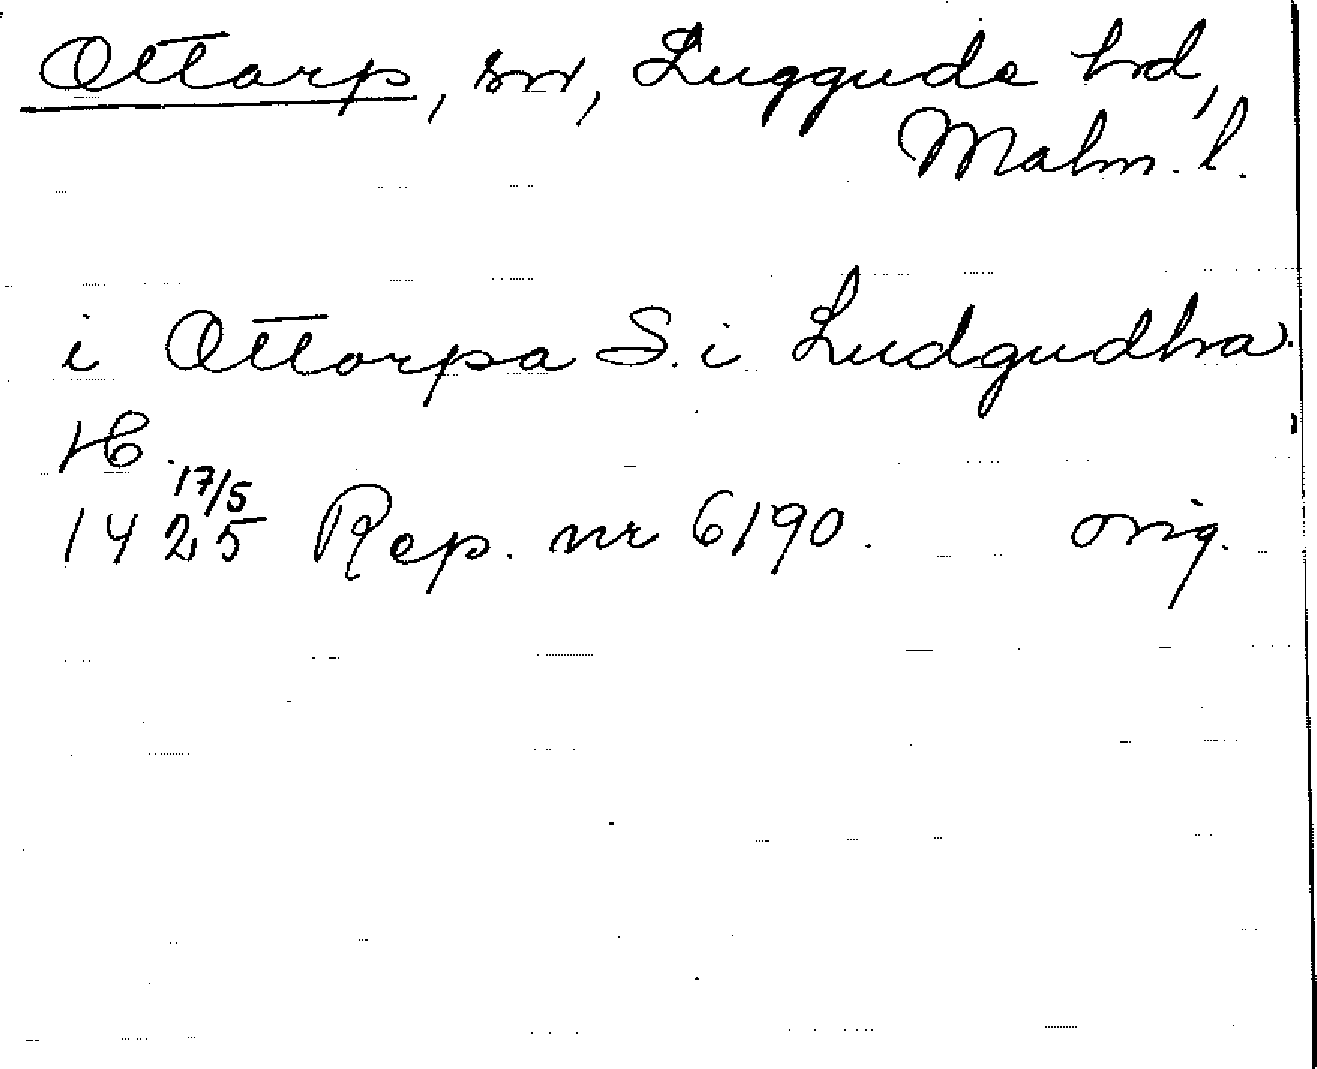 Ottarp, sn, Luggude hd,
Malm. l.
i Ottorpa S. i Ludgudha
H.
17/5
1425 Rep. nr 6190. orig.